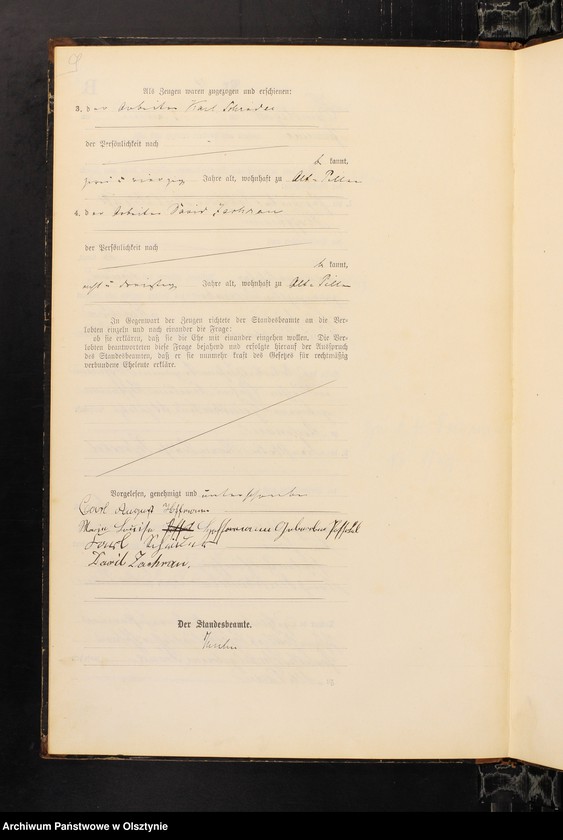 9
Als Zeugen waren zugezogen und erschienen:
3. der Arbeiter Karl Schrader
der Persönlichkeit nach
be kannt,
zwei u vierzig Jahre alt, wohnhaft zu Alt-Pillau
4. der Arbeiter David Zachrau
der Persönlichkeit nach
be kannt,
acht u dreißig Jahre alt, wohnhaft zu Alt-Pillau
In Gegenwart der Zeugen richtete der Standesbeamte an die Ver-
lobten einzeln und nach einander die Frage:
ob sie erklären, daß sie die Ehe mit einander eingehen wollen. Die Ver-
lobten beantworteten diese Frage bejahend und erfolgte hierauf der Ausspruch
des Standesbeamten, daß er sie nunmehr kraft des Gesetzes für rechtmäßig
verbundene Eheleute erkläre.
Vorgelesen, genehmigt und unterschrieben
Carl August Hoffmann
Marie Louise Hoffmann Geborene
Karl Schrader
David Zachrau.
Der Standesbeamte.
Archiwum Państwowe w Olsztynie